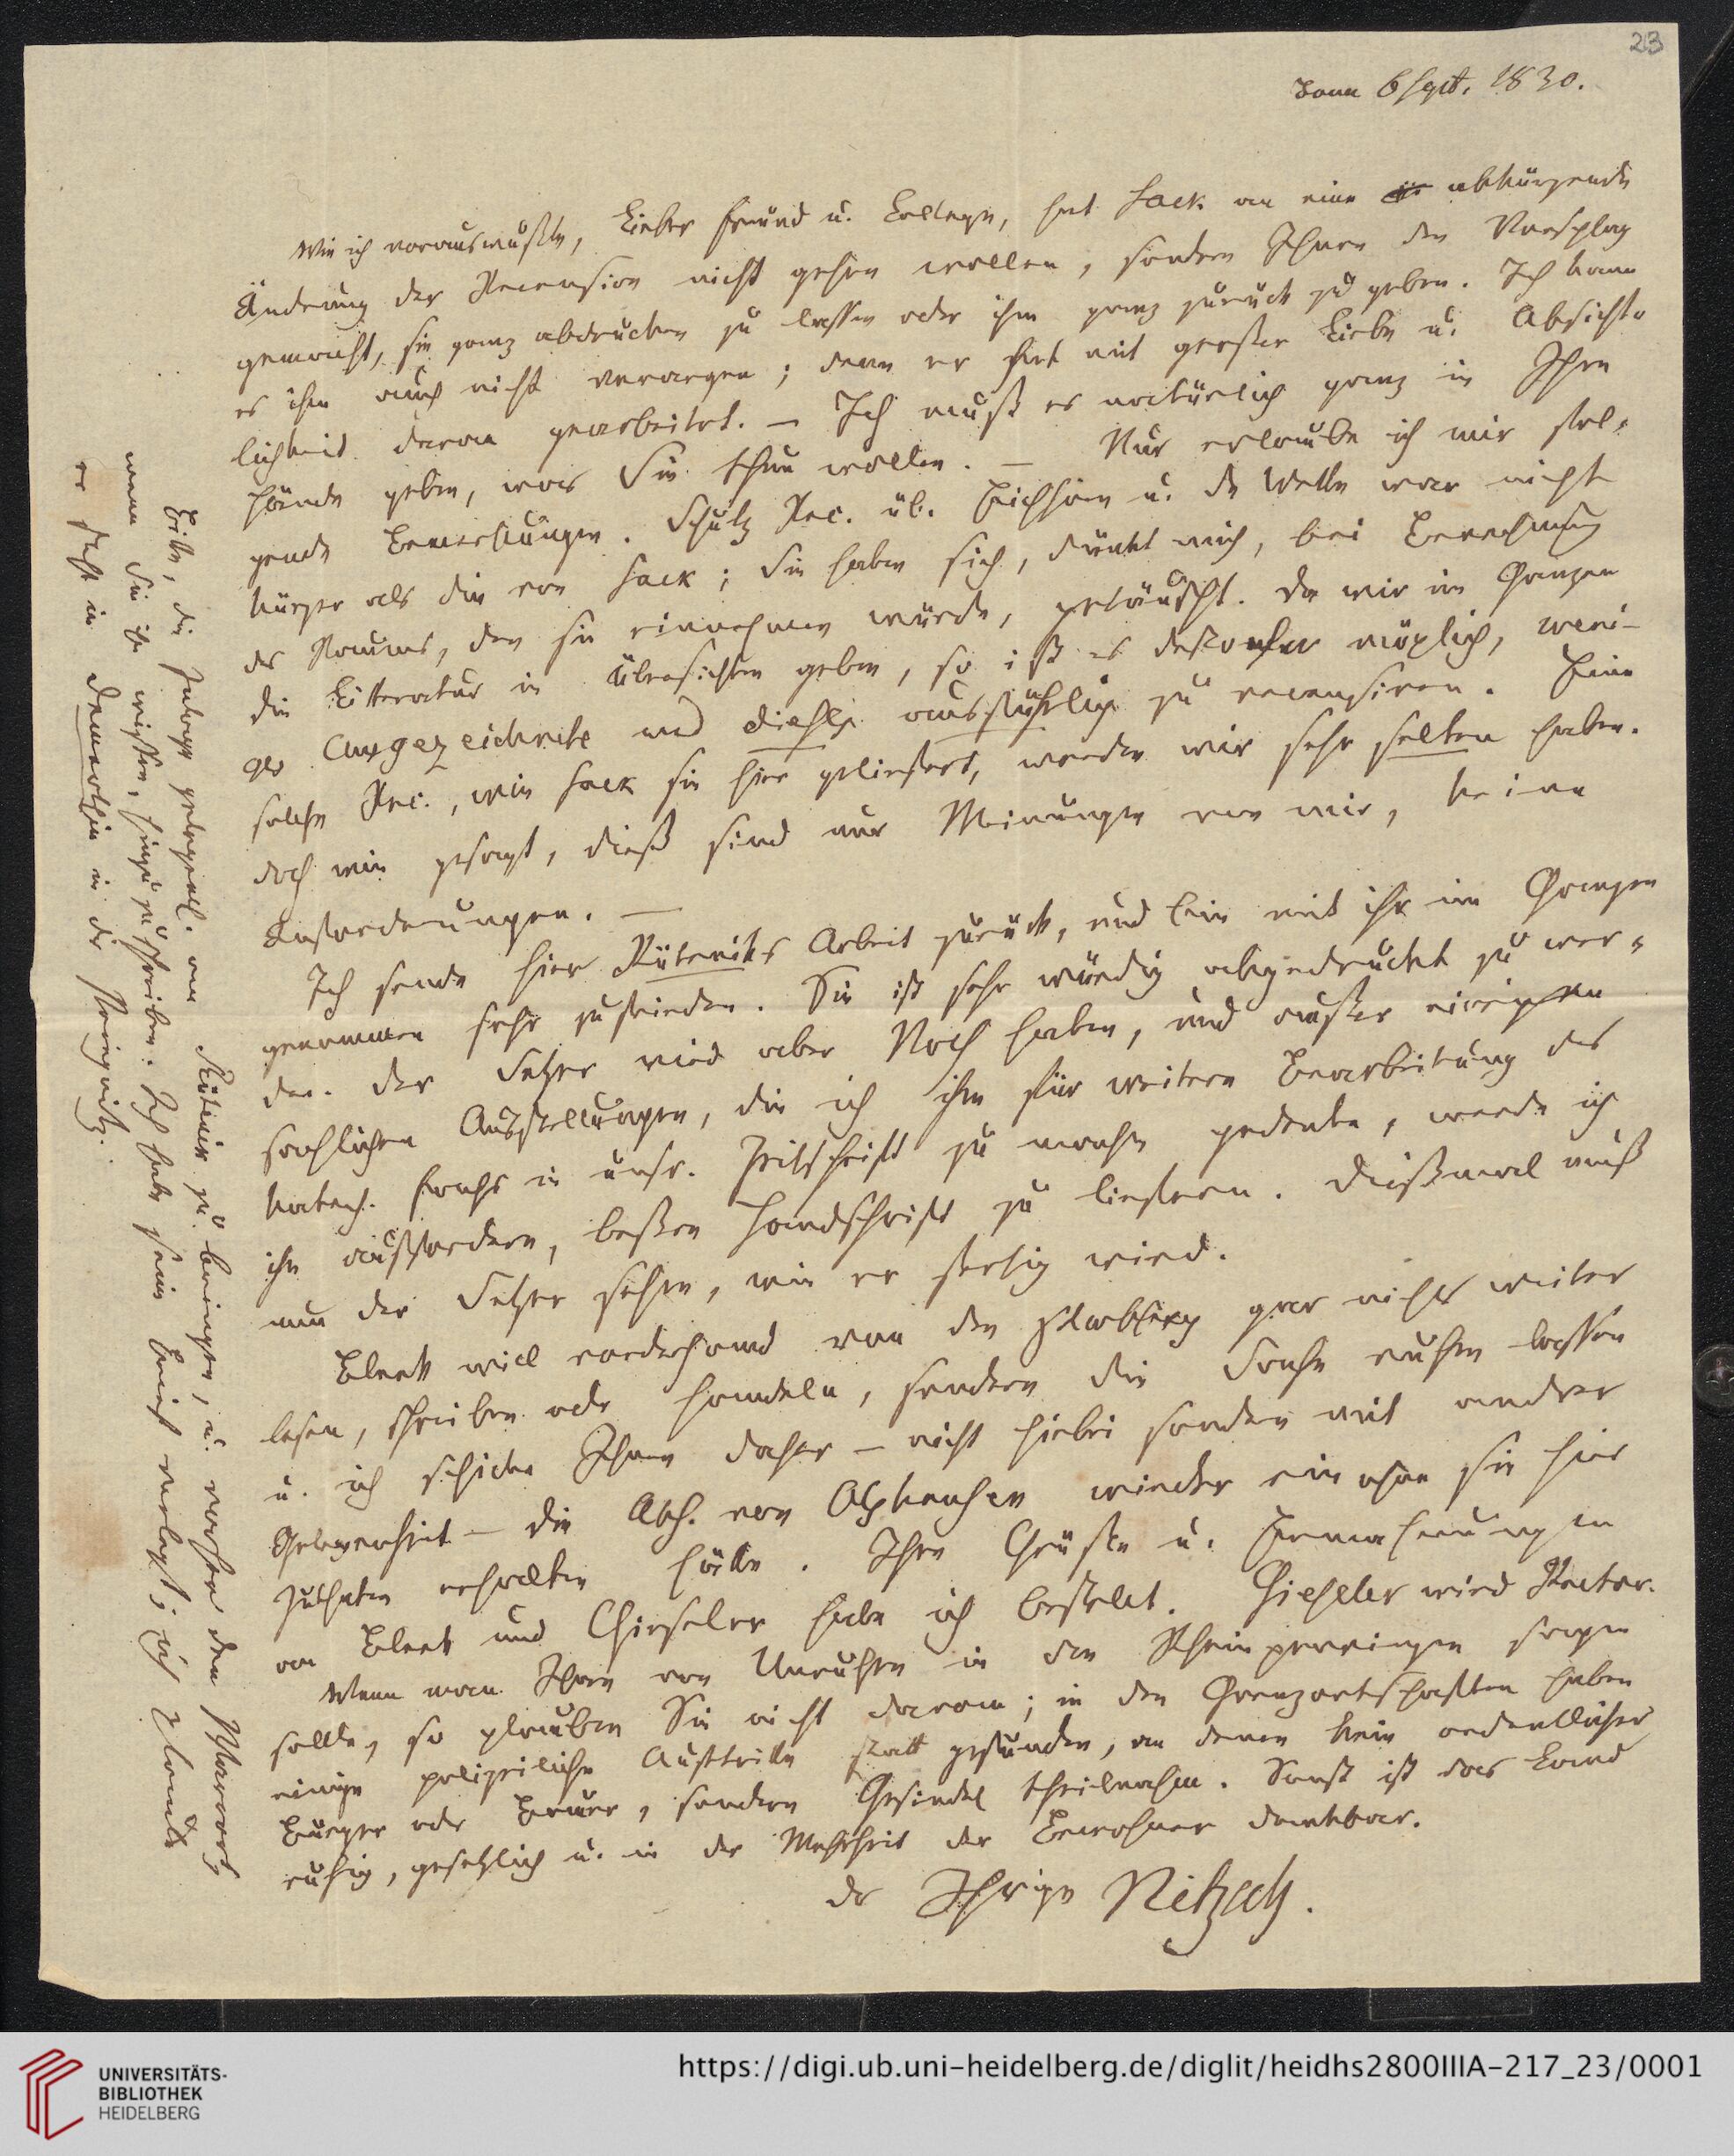 23
Bonn 6 Sept. 1830.
Wie ich vorauswußte, Lieber Freund u. College, hat Sack an eine abkürzende
Änderung der Recension nicht gehen wollen, sondern Ihnen den Vorschlag
gemacht, sie ganz abdrucken zu lassen oder ihm ganz zurück zu geben. Ich kann
es ihm auch nicht verargen; denn er hat mit großer Liebe u. Absicht-
lichkeit daran gearbeitet. – Ich muß es natürlich ganz in Ihre
Hände geben, was Sie thun wollen. – Nur erlaube ich mir fol-
gende Bemerkungen. Schulz Rec. üb. Eichhorn u. de Wette war nicht
kürzer als die von Sack; Sie haben sich, dünkt mich, bei Berechnung
des Raums, den sie einnehmen würde, getäuscht. Da wir im Ganzen
die Litteratur in Übersichten geben, so ist es desto eher möglich, weni-
ges Ausgezeichnete und dieses ausführlich zu recensiren. Eine
solche Rec., wie Sack sie hier geliefert, werden wir sehr selten haben.
doch wie gesagt, dieß sind nur Meinungen von mir, keine
Anforderungen. –
Ich sende hier Rüteniks Arbeit zurück, und bin mit ihr im Ganzen
genommen sehr zufrieden. Sie ist sehr würdig abgedruckt zu wer-
den. Der Setzer wird aber Noth haben, und außer einigen
sachlichen Ausstellungen, die ich ihm für weitere Bearbeitung des
katech. Fachs in unsr. Zeitschrift zu machen gedenke, werde ich
ihn auffordern, beßere Handschrift zu liefern. Dießmal muß
nun der Setzer sehen, wie er fertig wird.
Bleek will vorderhand von den gar nichts weiter
lesen, schreiben oder handeln, sondern die Sache ruhen lassen
u. ich schicke Ihnen daher – nicht hiebei sondern mit andrer
Gelegenheit – die Abh. von Olshausen wieder ein ohne sie hier
Zuthaten erhalten hätte. Ihre Grüße u. Ermahnungen
an Bleek und Gieseler habe ich bestellt. Gieseler wird Rector.
Wenn man Ihnen von Unruhen in den Rheinprovinzen sagen
sollte, so glauben Sie nicht daran; in den Grenzortschaften haben
einige polizeiliche Auftritte statt gefunden, an denen kein ordentlicher
Bürger oder Bauer, sondern Gesindel theilnahm. Sonst ist das Land
ruhig, gesetzlich u. in der Mehrheit der Bewohner dankbar.
Der Ihrige Nitzsch.
Bitte, die gelegentl. an Rütenik zu bringen, u. vorher den
wenn Sie ihn wißen, hinzu zu schreiben. Ich habe seinen Brief verlegt; ich glaube
er steht in in der Priegnitz.
UNIVERSITÄTS-
BIBLIOTHEK
HEIDELBERG
https://digi.ub.uni-heidelberg.de/diglit/heidhs2800IIIA-217_23/0001